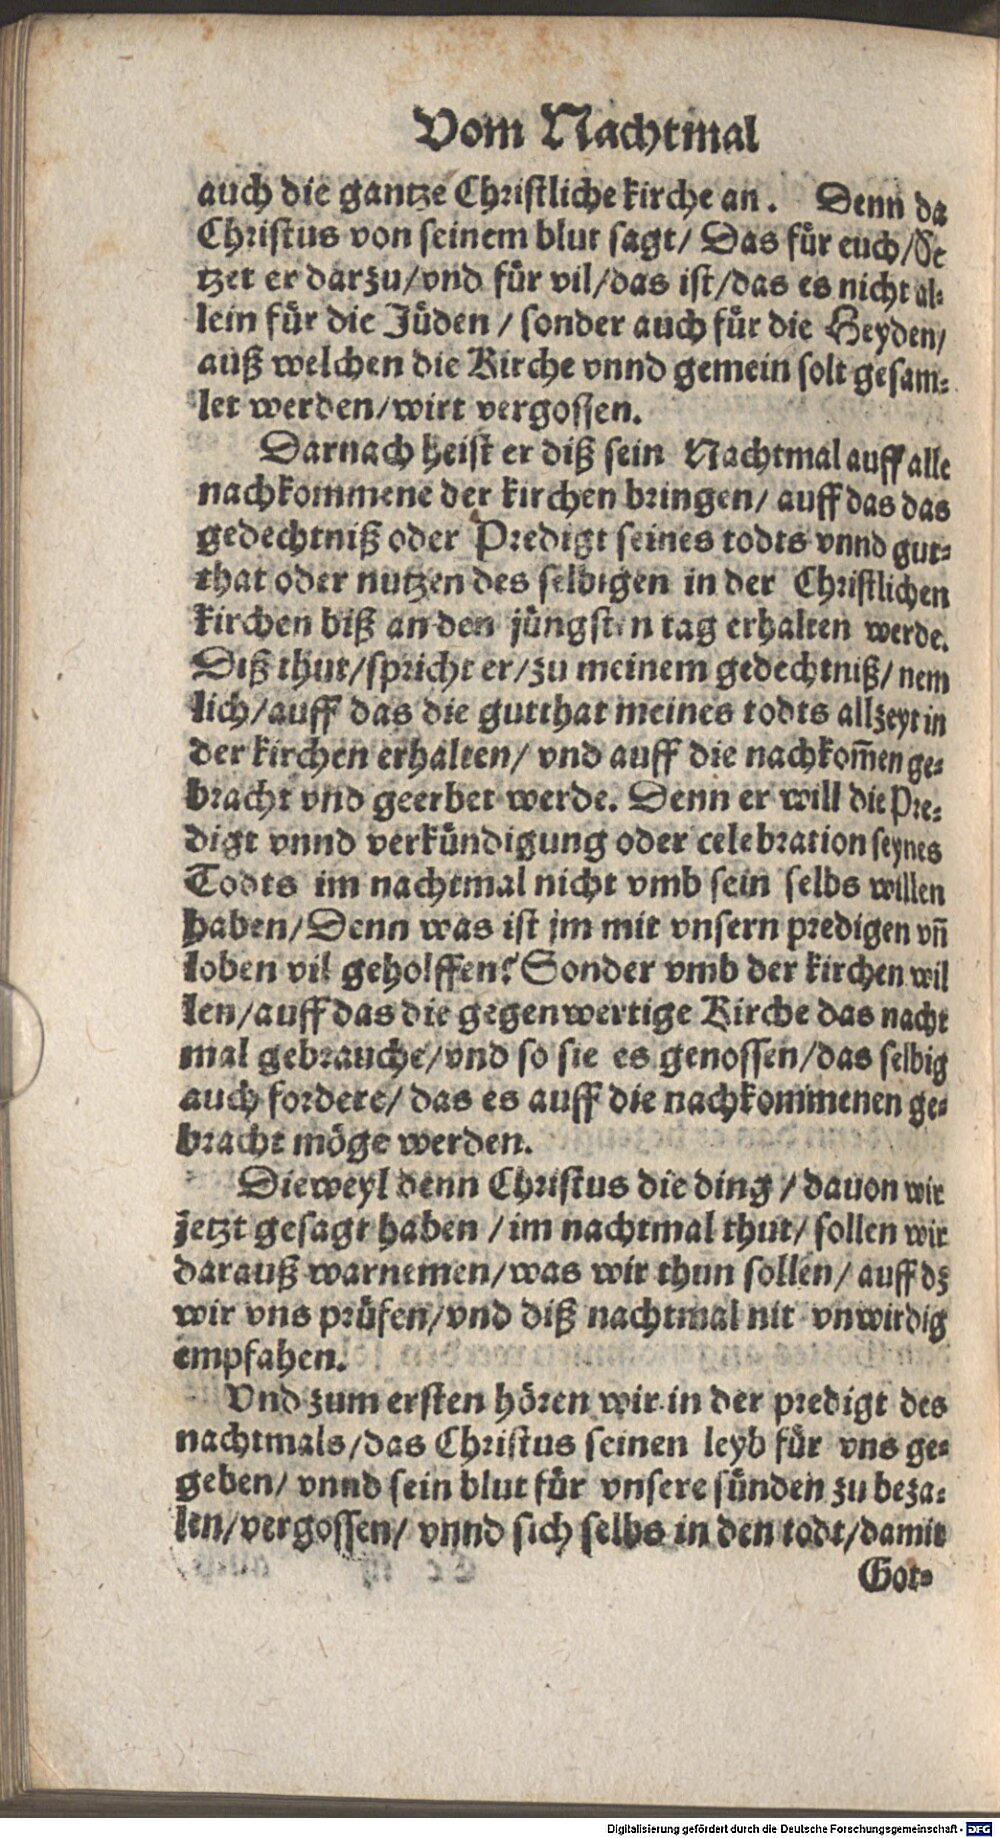 Vom Nachtmal
auch die gantze Christliche kirche an. Denn da
Christus von seinem blut sagt/ Das für euch/ Se
tzet er darzu/vnd für vil/das ist/das es nicht al-
lein für die Jüden / sonder auch für die Heyden/
auß welchen die Kirche vnnd gemein solt gesam-
let werden/wirt vergossen.
Darnach heist er diß sein Nachtmal auff alle
nachkommene der kirchen bringen/ auff das das
gedechtniß oder Predigt seines todts vnnd gut-
that oder nutzen des selbigen in der Christlichen
kirchen biß an den jüngsten tag erhalten werde.
Diß thut/spricht er/zu meinem gedechtniß/ nem
lich/auff das die gutthat meines todts allzeyt in
der kirchen erhalten/ vnd auff die nachkom̄en ge-
bracht vnd geerbet werde. Denn er will die Pre-
digt vnnd verkündigung oder celebration seynes
Todts im nachtmal nicht vmb sein selbs willen
haben/Denn was ist jm mit vnsern predigen vn̄
loben vil geholffen? Sonder vmb der kirchen wil
len/auff das die gegenwertige Kirche das nacht
mal gebrauche/vnd so sie es genossen/das selbig
auch fordere/ das es auff die nachkommenen ge-
bracht möge werden.
Dieweyl denn Christus die ding / dauon wir
jetzt gesagt haben / im nachtmal thut/ sollen wir
darauß warnemen/was wir thun sollen/ auff dz
wir vns prüfen/vnd diß nachtmal nit vnwirdig
empfahen.
Vnd zum ersten hören wir in der predigt des
nachtmals/das Christus seinen leyb für vns ge-
geben/ vnnd sein blut für vnsere sünden zu beza-
len/vergossen/ vnnd sich selbs in den todt/damit
Got-
Digitalisierung gefördert durch die Deutsche Forschungsgemeinschaft - DFG